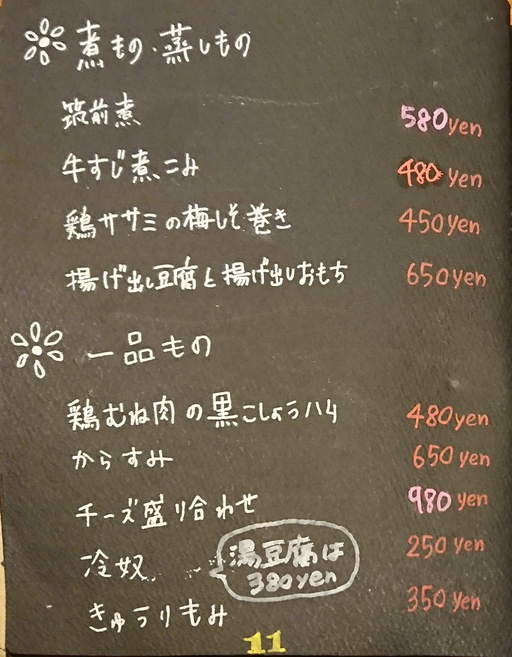 煮もの・蒸しもの
筑前煮 580yen
牛すじ煮こみ 480yen
鶏ササミの梅しそ巻き 450yen
揚げ出し豆腐と揚げ出しおもち 650yen
一品もの
鶏むね肉の黒こしょうハム 480yen
からすみ 650yen
チーズ盛り合わせ 980yen
冷奴 250yen
湯豆腐は
380yen
きゅうりもみ 350yen
11